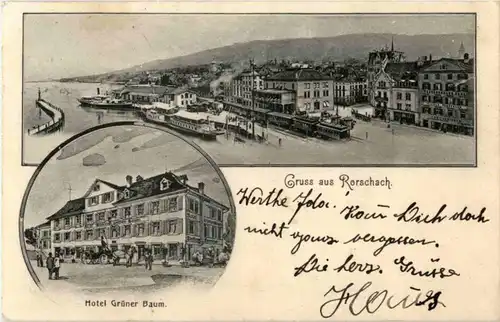 Gruss aus Rorschach.
Werthe Ida. Kann Dich doch
nicht ganz vergessen.
Die herz. Grüsse
Hotel Grüner Baum.